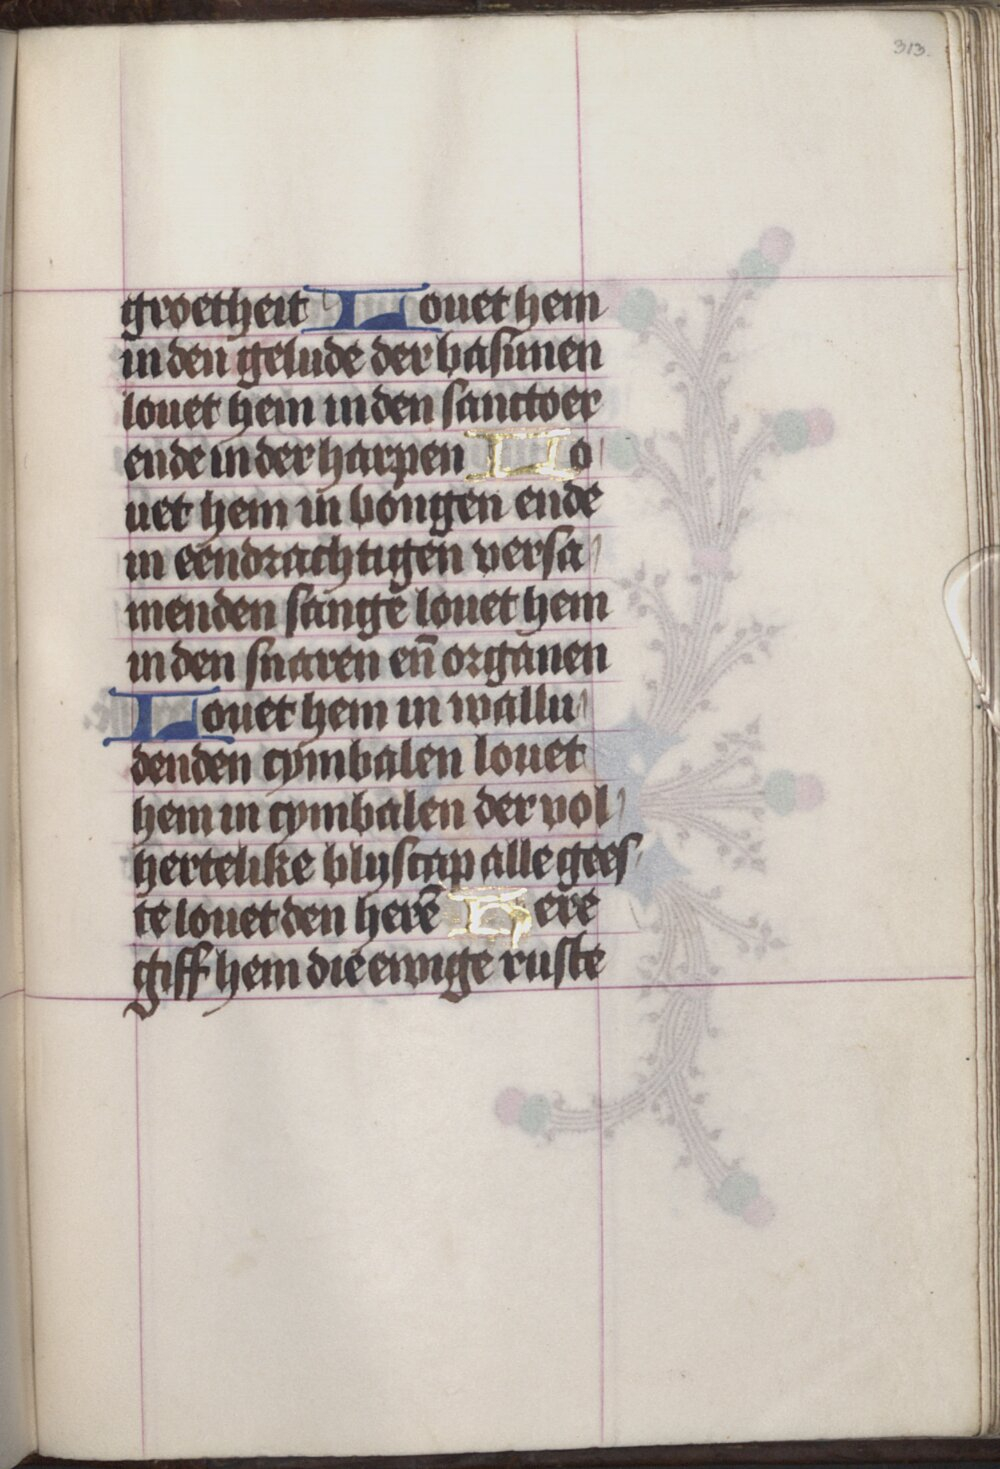 313.
groetheit Louet hem
in den gelude der basunen
louet hem in den sanctoer
ende in der harpen Lo
uet hem in bongen ende
in eendrachtigen versa
menden sangē louet hem
in den snaren en̄ organen
Louet hem in wallu
denden cymbalen louet
hem in cymbalen der vol
hertelike blyscap alle gees
te louet den herē Here
giff hem die ewige ruste